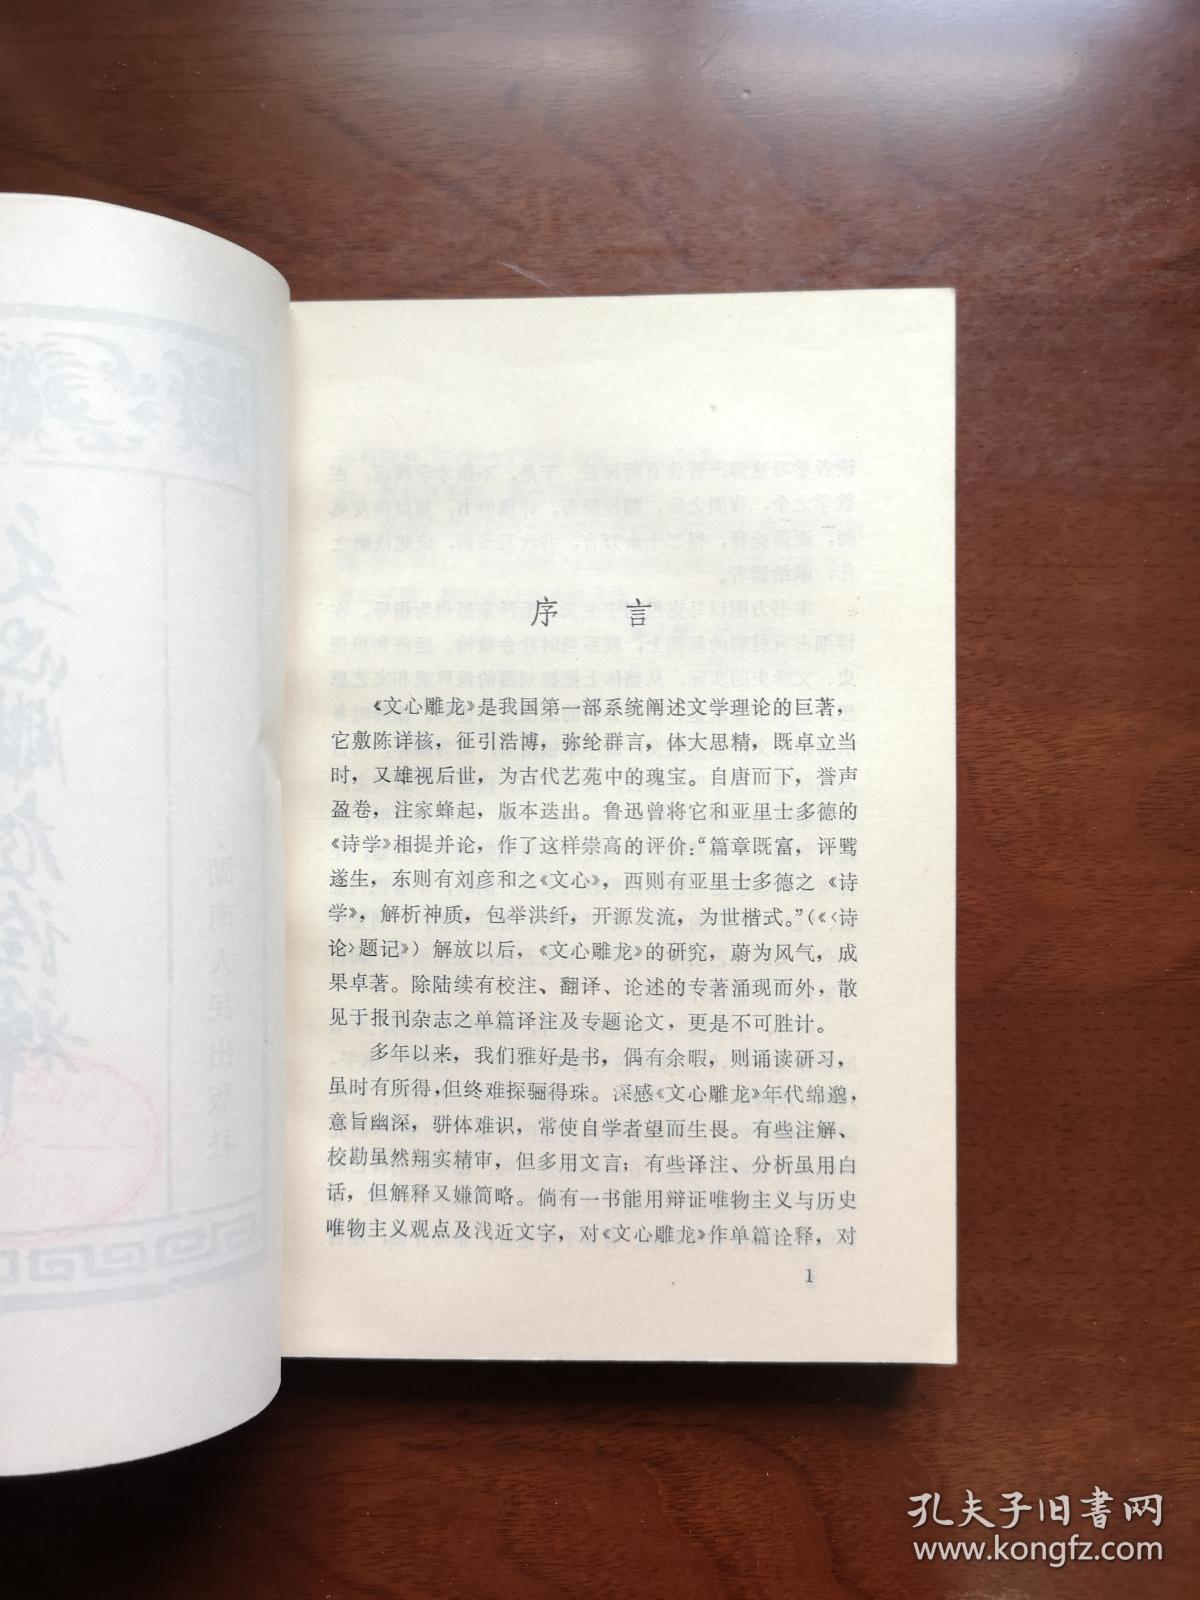 序 言
《文心雕龙》是我国第一部系统阐述文学理论的巨著，
它敷陈详核，征引浩博，弥纶群言，体大思精，既卓立当
时，又雄视后世，为古代艺苑中的瑰宝。自唐而下，誉声
盈卷，注家蜂起，版本迭出。鲁迅曾将它和亚里士多德的
《诗学》相提并论，作了这样崇高的评价：“篇章既富，评骘
遂生，东则有刘彦和之《文心》，西则有亚里士多德之《诗
学》，解析神质，包举洪纤，开源发流，为世楷式。”（《〈诗
论〉题记》）解放以后，《文心雕龙》的研究，蔚为风气，成
果卓著。除陆续有校注、翻译、论述的专著涌现而外，散
见于报刊杂志之单篇译注及专题论文，更是不可胜计。
多年以来，我们雅好是书，偶有余暇，则诵读研习，
虽时有所得，但终难探骊得珠。深感《文心雕龙》年代绵邈，
意旨幽深，骈体难识，常使自学者望而生畏。有些注解、
校勘虽然翔实精审，但多用文言；有些译注、分析虽用白
话，但解释又嫌简略。倘有一书能用辩证唯物主义与历史
唯物主义观点及浅近文字，对《文心雕龙》作单篇诠释，对
1
孔夫子旧书网
www.kongfz.com